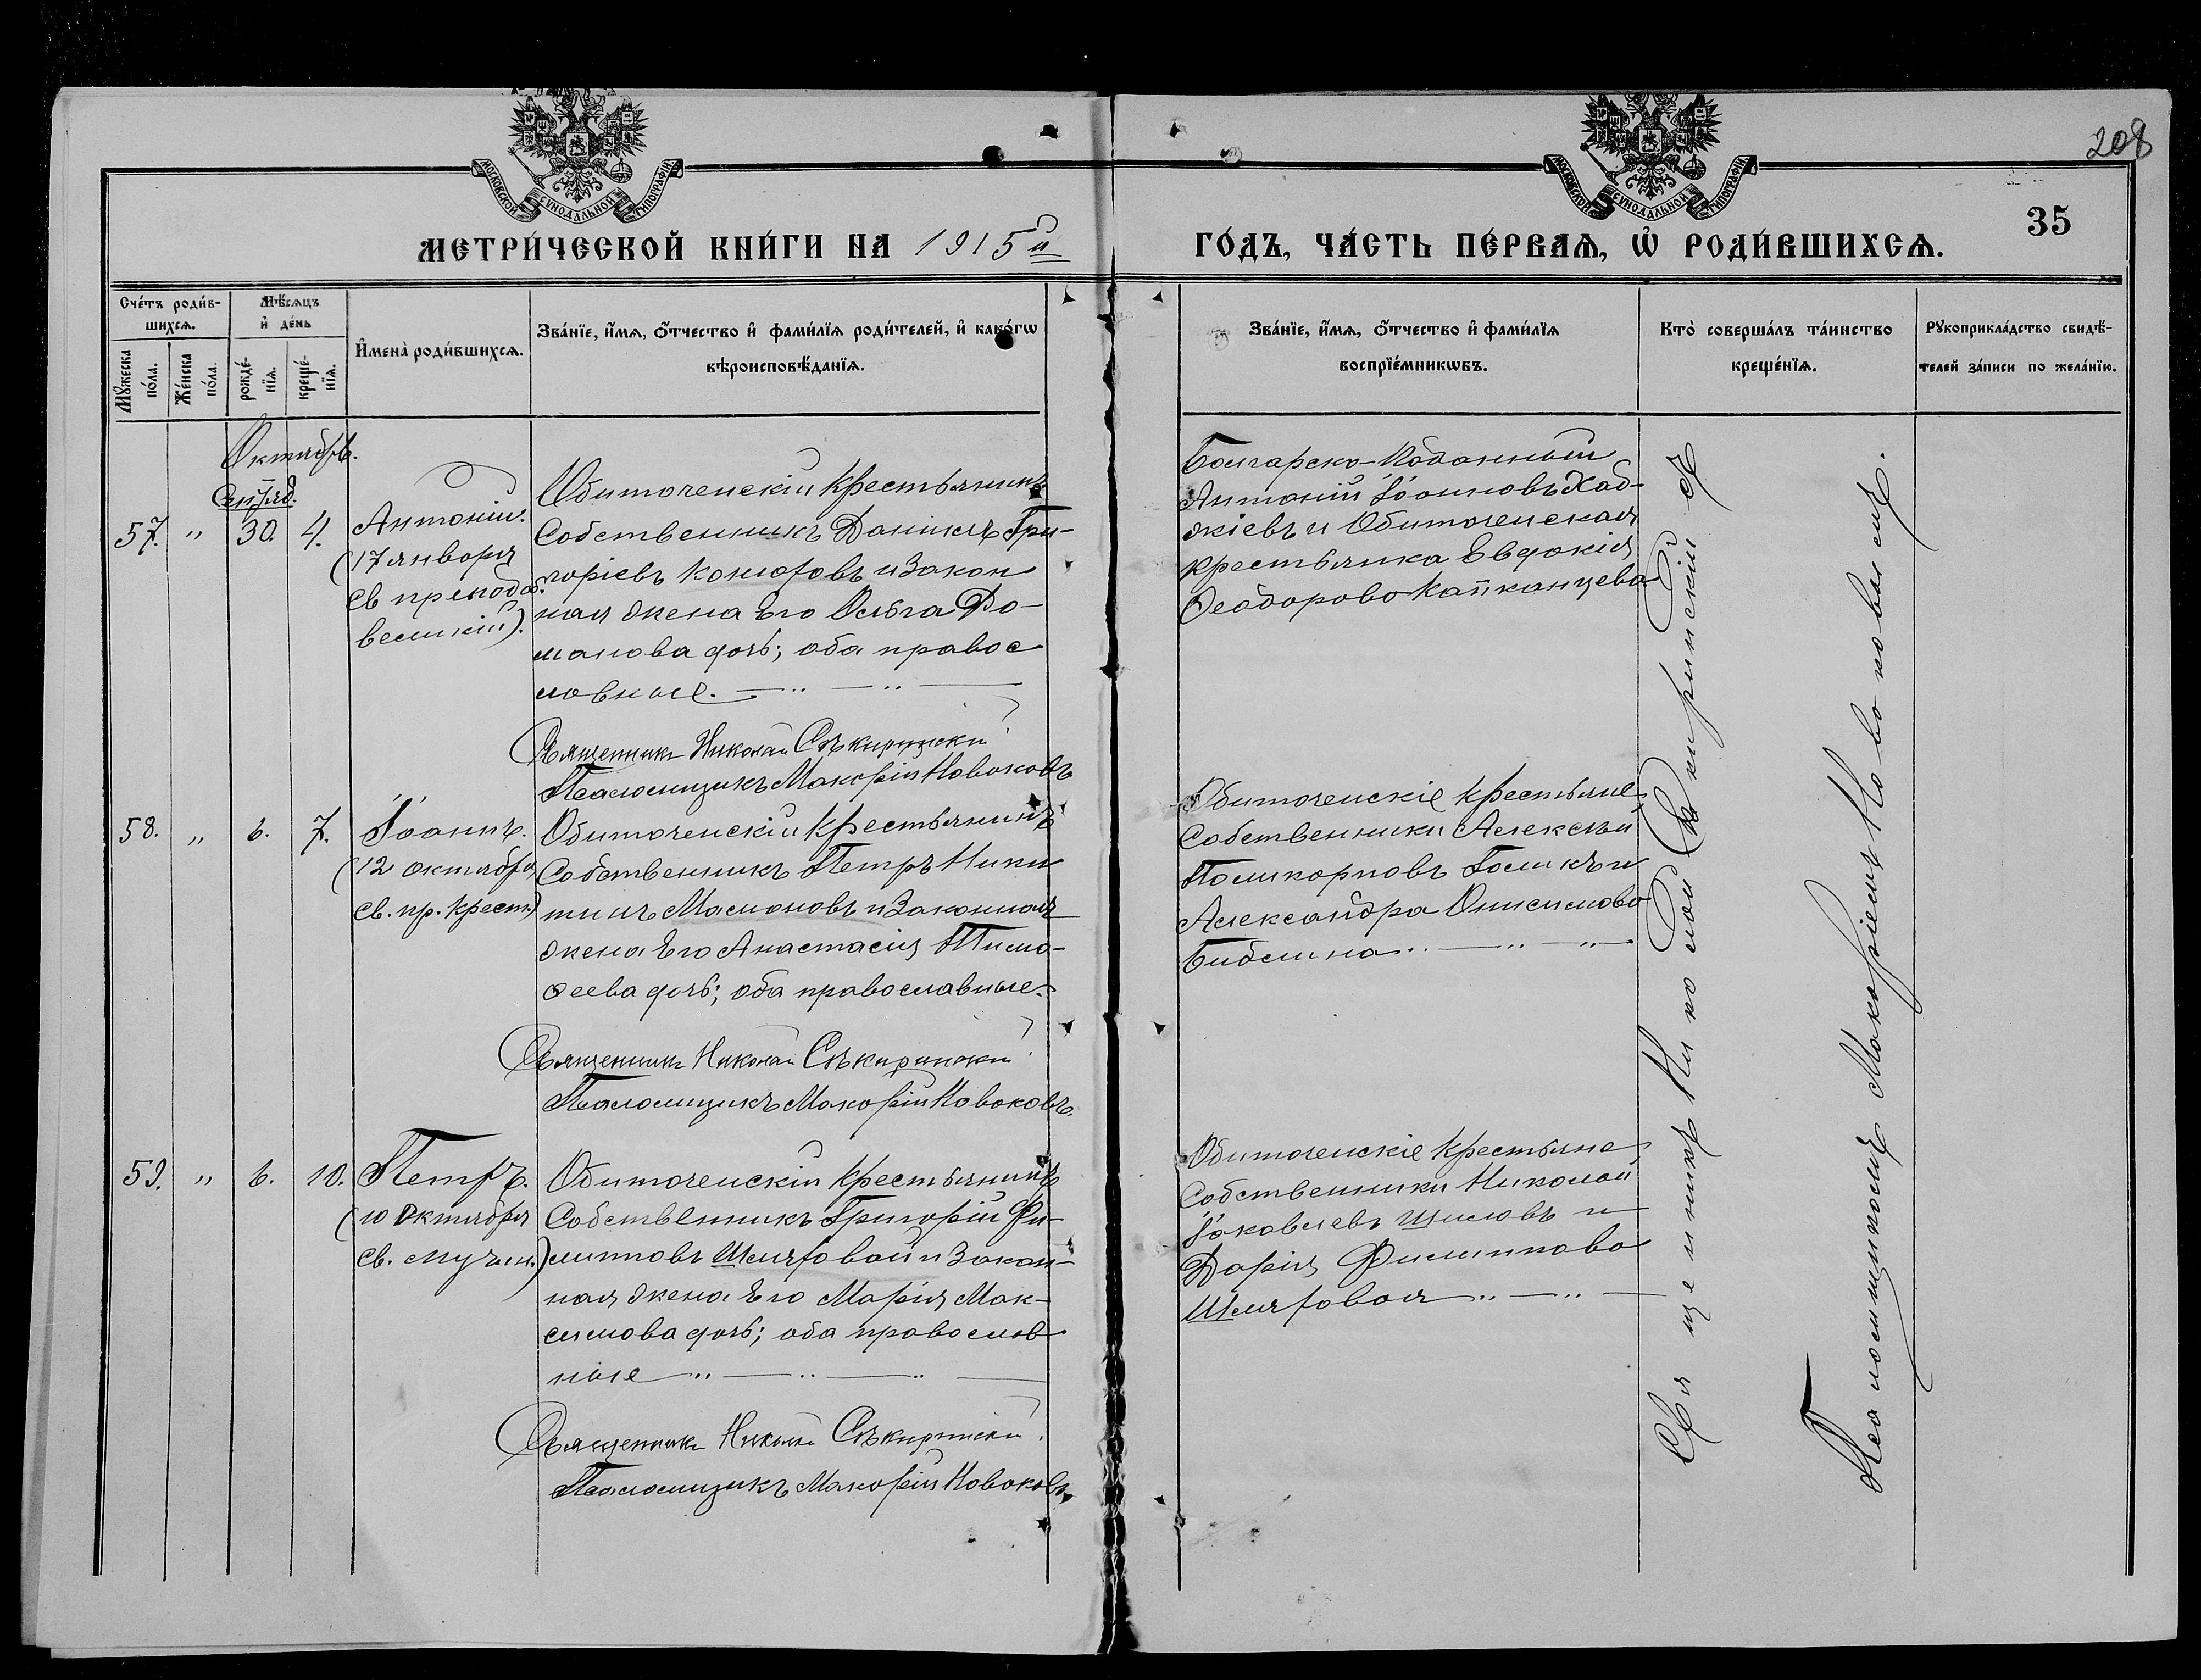 208
МОСКОВСКОЙ СѴНОДАЛЬНОЙ ТИПОГРАФІИ
МОСКОВСКОЙ СѴНОДАЛЬНОЙ ТИПОГРАФІИ
35
МЕТРИ́ЧЕСКОЙ КНИ́ГИ НА 1915й
ГО́ДЪ, ЧА́СТЬ ПЕ́РВАѦ, Ѡ҆ РОДИ́ВШИХСѦ.
Сче́тъ роди́в-
шихсѧ.
Мꙋ́жеска
по́ла.
Же́нска
по́ла.
Мѣ́сѧцъ
и҆ де́нь
рожде́-
нїѧ.
креще́-
нїѧ.
И҆мена̀ роди́вшихсѧ.
Зва́нїе, и҆́мѧ, ѻ҆́тчество и҆ фами́лїѧ роди́телей, и҆ како́гѡ
вѣроисповѣ́данїѧ.
Зва́нїе, и҆́мѧ, ѻ҆́тчество и҆ фами́лїѧ
воспрїе́мникѡвъ.
Кто̀ соверша́лъ та́инство
креще́нїѧ.
Рꙋкоприкла́дство свидѣ́-
телей за́писи по жела́нїю.
Октябрь.
Сентяб.
57. " 30. 4.
Антоній.
(17 января
св препод.
великій).
Обиточенскій крестьянинъ
Собственникъ Даніилъ Гри-
горіевъ Конофовъ и Закон
ная жена Его Ольга Ро-
манова дочь; оба правос
лавные.
Священникъ Николай Сѣкиринскій
Псаломщикъ Макарій Новаковъ
Болгарско-Подданный
Антоній Іоанновъ Хад-
жіевъ и Обиточенская
крестьянка Евдокія
Феодорова Капканцева
58. " 6. 7.
Іоаннъ.
(12 октября
св. пр. Крест.)
Обиточенскій крестьянинъ
Собственникъ Петръ Ники
тинъ Масионовъ и Законная
жена Его Анастасія Тимо-
феева дочь; оба православные.
Священникъ Николай Сѣкиринскій
Псаломщикъ Макарій Новаковъ.
Обиточенскіе крестьяне
Собственники Алексѣй
Поликарповъ Голикъ и
Александра Онисимова
Бибсина
59. " 6. 10.
Петръ.
(10 октября
св. мучен.)
Обиточенскій крестьянинъ
Собственникъ Григорій Фи-
липповъ Шляховой и Закон-
ная жена Его Марія Мак-
симова дочь; оба православ
ные
Священникъ Николай Сѣкиринскій
Псаломщикъ Макарій Новаковъ
Обиточенскіе крестьяне
Собственники Николай
Іаковлевъ Шиловъ и
Дарія Филиппова
Шляховая
Священникъ Николай Сѣкиринскій съ
Псаломщикомъ Макаріемъ Новаковымъ.